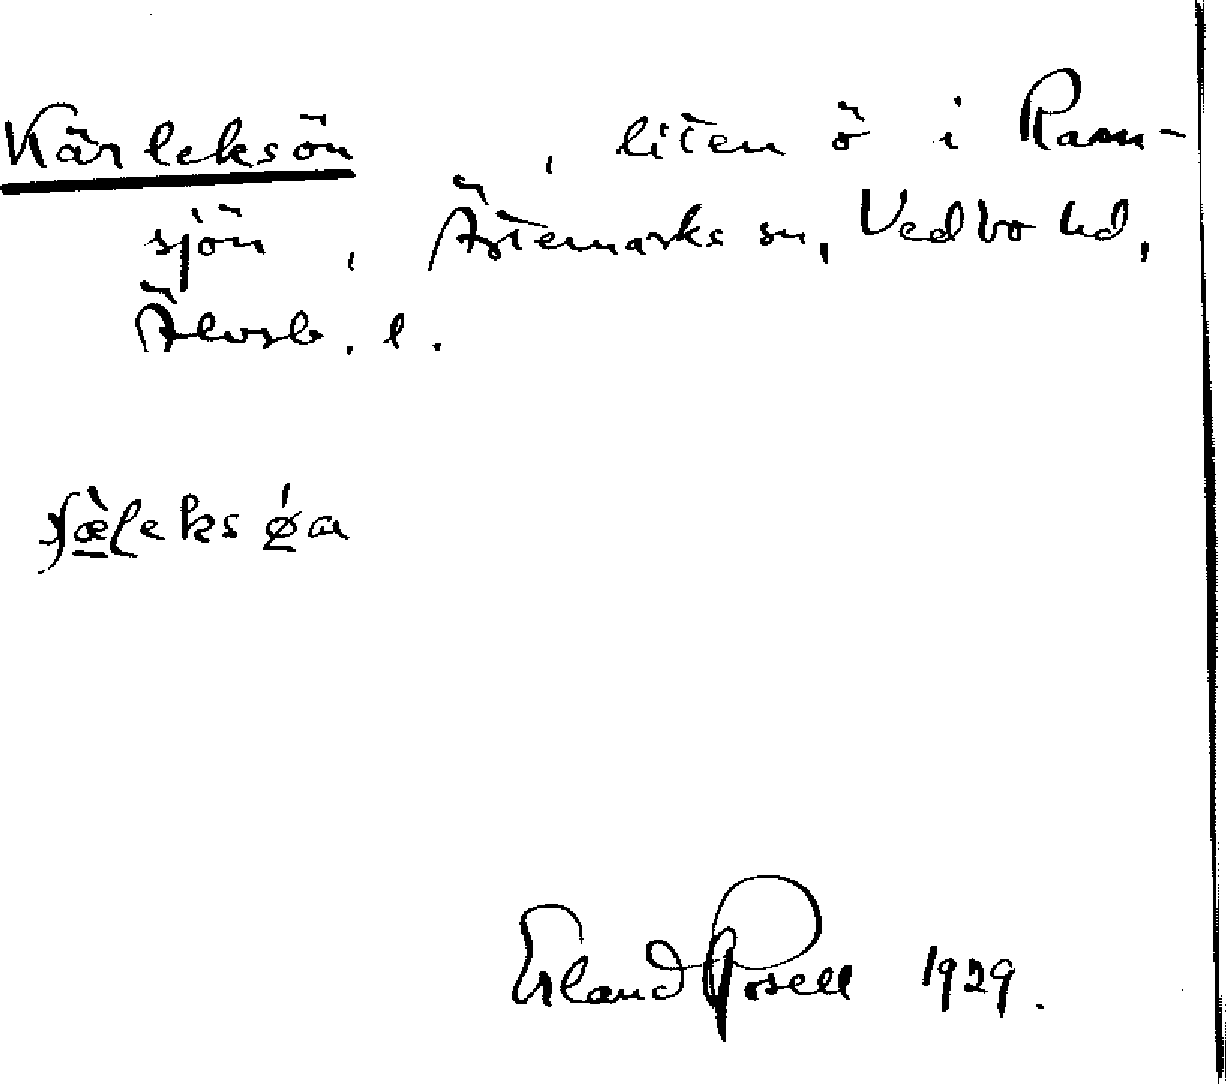 Kärleksön, liten ö i Ram-
sjön, Ärtemarks sn, Vedbo hd,
Älvsb. l.
Erland Rosell 1929.